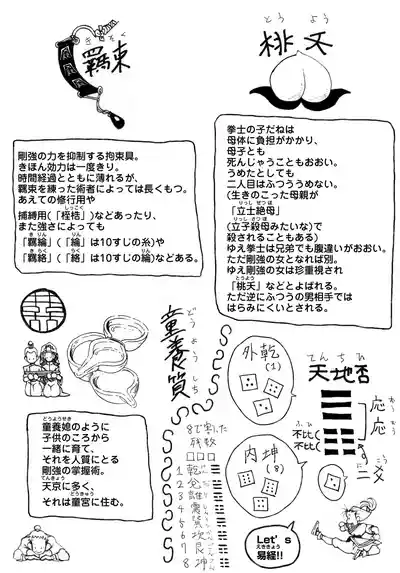 とうよう
桃夭
拳士の子だねは
母体に負担がかかり、
母子とも
死んじゃうこともおおい。
うめたとしても
二人目はふつううめない。
(生きのこった母親が
りっしぜつぼ
「立士絶母」
りっしさつぼ
(立子殺母みたいな)で
殺されることもある)
ゆえ拳士は兄弟でも腹違いがおおい。
ただ剛強の女となれば別。
ゆえ剛強の女は珍重視され
とうよう
「桃夭」などとよばれる。
ただ逆にふつうの男相手では
はらみにくいとされる。
きそく
羈束
剛強の力を抑制する拘束具。
きほん効力は一度きり。
時間経過とともに薄れるが、
羈束を練った術者によっては長くもつ。
あえての修行用や
しっこく
捕縛用(「桎梏」)などあったり、
また強さによっても
きりん りん
「羈綸」(「綸」は10すじの糸)や
きらく らく りん
「羈絡」(「絡」は10すじの綸)などある。
てんちひ
天地否
応
応
ふひ
不比
不比
二爻
Let's
えききょう
易経!!
外乾
(1)
内坤
(8)
どうようしち
童養質
8で割った
残数
1 乾
2 兌
3 離
4 震
5 巽
6 坎
7 艮
8 坤
どうようせき
童養媳のように
子供のころから
一緒に育て、
それを人質にとる
剛強の掌握術。
てんきょう
天京に多く、
どうきゅう
それは童宮に住む。